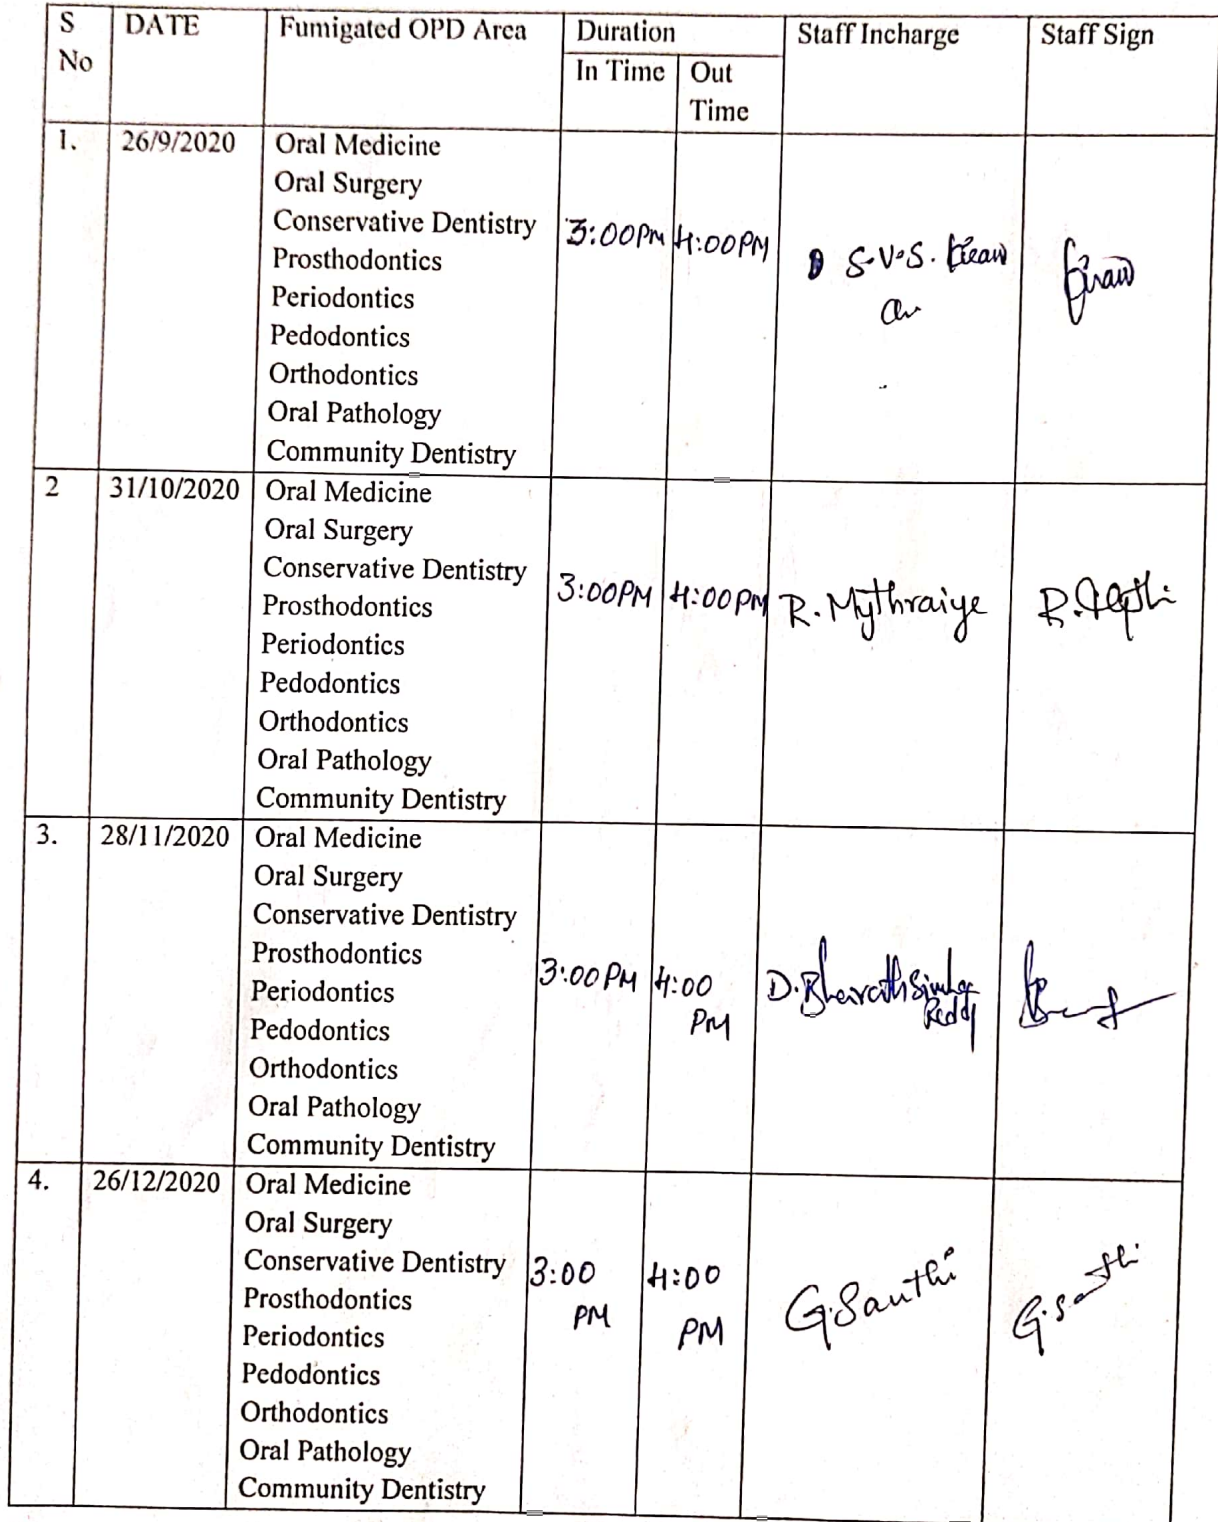 S No DATE Fumigated OPD Area Duration Staff Incharge Staff Sign
In Time Out Time
1. 26/9/2020 Oral Medicine
Oral Surgery
Conservative Dentistry
Prosthodontics
Periodontics
Pedodontics
Orthodontics
Oral Pathology
Community Dentistry
3:00PM 4:00PM S.V.S.
2 31/10/2020 Oral Medicine
Oral Surgery
Conservative Dentistry
Prosthodontics
Periodontics
Pedodontics
Orthodontics
Oral Pathology
Community Dentistry
3:00PM 4:00PM R. Mythraiye R.
3. 28/11/2020 Oral Medicine
Oral Surgery
Conservative Dentistry
Prosthodontics
Periodontics
Pedodontics
Orthodontics
Oral Pathology
Community Dentistry
3:00PM 4:00 PM D. Bharath Simha Reddy
4. 26/12/2020 Oral Medicine
Oral Surgery
Conservative Dentistry
Prosthodontics
Periodontics
Pedodontics
Orthodontics
Oral Pathology
Community Dentistry
3:00 PM 4:00 PM G. Santhi G. Santhi